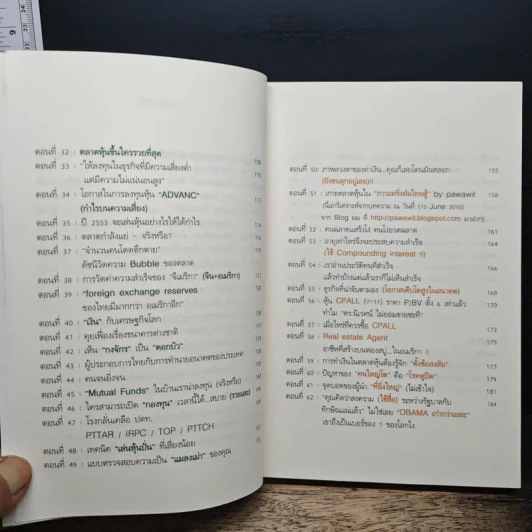 ตอนที่ 32 : ตลาดหุ้นขึ้นใครรวยที่สุด
ตอนที่ 33 : "ให้ลงทุนในธุรกิจที่มีความเสี่ยงต่ำ
แต่มีความไม่แน่นอนสูง"
ตอนที่ 34 : โอกาสในการลงทุนหุ้น "ADVANC"
(กำไรบนความเสี่ยง)
ตอนที่ 35 : ปี 2553 จะเล่นหุ้นอย่างไรให้ได้กำไร
ตอนที่ 36 : ตลาดกำลังแย่ - จริงหรือ?
ตอนที่ 37 : "จำนวนคนโดดตึกตาย"
ดัชนีวัดความ Bubble ของตลาด
ตอนที่ 38 : การวัดค่าความสำเร็จของ "จีเมริกา" (จีน+อเมริกา)
ตอนที่ 39 : "foreign exchange reserves
ของไทยมีมากกว่า อเมริกาอีก"
ตอนที่ 40 : "เงิน" กับเศรษฐกิจโลก
ตอนที่ 41 : คุยเฟื่องเรื่องธนาคารต่างชาติ
ตอนที่ 42 : เห็น "กงจักร" เป็น "ดอกบัว"
ตอนที่ 43 : ผู้ประกอบการไทยกับการทำนายอนาคตของประเทศ
ตอนที่ 44 : คนจนยิ่งจน
ตอนที่ 45 : "Mutual Funds" ในบ้านเราน่าลงทุน (จริงหรือ)
ตอนที่ 46 : ใครสามารถเปิด "กองทุน" เวลานี้ได้...สบาย (รวยเละ)
ตอนที่ 47 : โรงกลั่นเครือ ปตท.
PTTAR / IRPC / TOP / PTTCH
ตอนที่ 48 : เทคนิค "เล่นหุ้นปั่น" ที่เสี่ยงน้อย
ตอนที่ 49 : แบบตรวจสอบความเป็น "แมลงเม่า" ของคุณ
ตอนที่ 50: ภาพลวงตาของค่าเงิน...คุณก็เลยโดนเงินหลอก 155
(ยิ่งขนลุกอยู่เลย)!!
ตอนที่ 51 : เกาะตลาดหุ้นใน by pawawit 158
(นี่เอาบทความ ณ วันที่ (15 June 2010)
จาก Blog ผม @ http://pawawit.blogspot.com มาฝาก)
ตอนที่ 52 : คนฉลาดแสร้งโง่ คนโง่อวดฉลาด
ตอนที่ 53 : อายุเท่าไหร่จึงจะประสบความสำเร็จ
(ใช้ Compounding interest !!)
ตอนที่ 54 : เราอ่านประวัติคนที่สำเร็จ
แล้วทำบ้างแต่แล้วเราก็ไม่เห็นสำเร็จ
ตอนที่ 55 : ธุรกิจที่น่าจับตามอง (โอกาสเติบโตสูงในอนาคต)
ตอนที่ 56 : หุ้น CPALL (7-11) ราคา P/BV ตั้ง 6 เท่าแล้ว
ทำไม "ดร.นิเวศน์ ไม่ยอมขายซะที"
ตอนที่ 57 : เมื่อไหร่ที่ควรซื้อ CPALL 173
ตอนที่ 58 : Real estate Agent 175
อาชีพที่สร้างบนฟองสบู่...ในอเมริกา !!
ตอนที่ 59 : การทำเงินในตลาดหุ้นต้องรู้จัก "ตั้งข้อสงสัย" 177
ตอนที่ 60 : ปัญหาของ "คนใหญ่โต" คือ "โรคหูปิด" 179
ตอนที่ 61 : จุดบอดของผู้นำ "ที่ยิ่งใหญ่" (ไม่เข้าใจ) 181
ตอนที่ 62 : "คุณคิดว่าสงคราม (ใช้สื่อ) ระหว่างรัฐบาลกับ 184
ทักษิณแน่แล้ว" ไม่ใช่เลย "OBAMA เก๋ากว่าเยอะ"
เขาถึงเป็นเบอร์ของ 1 ของโลกไง